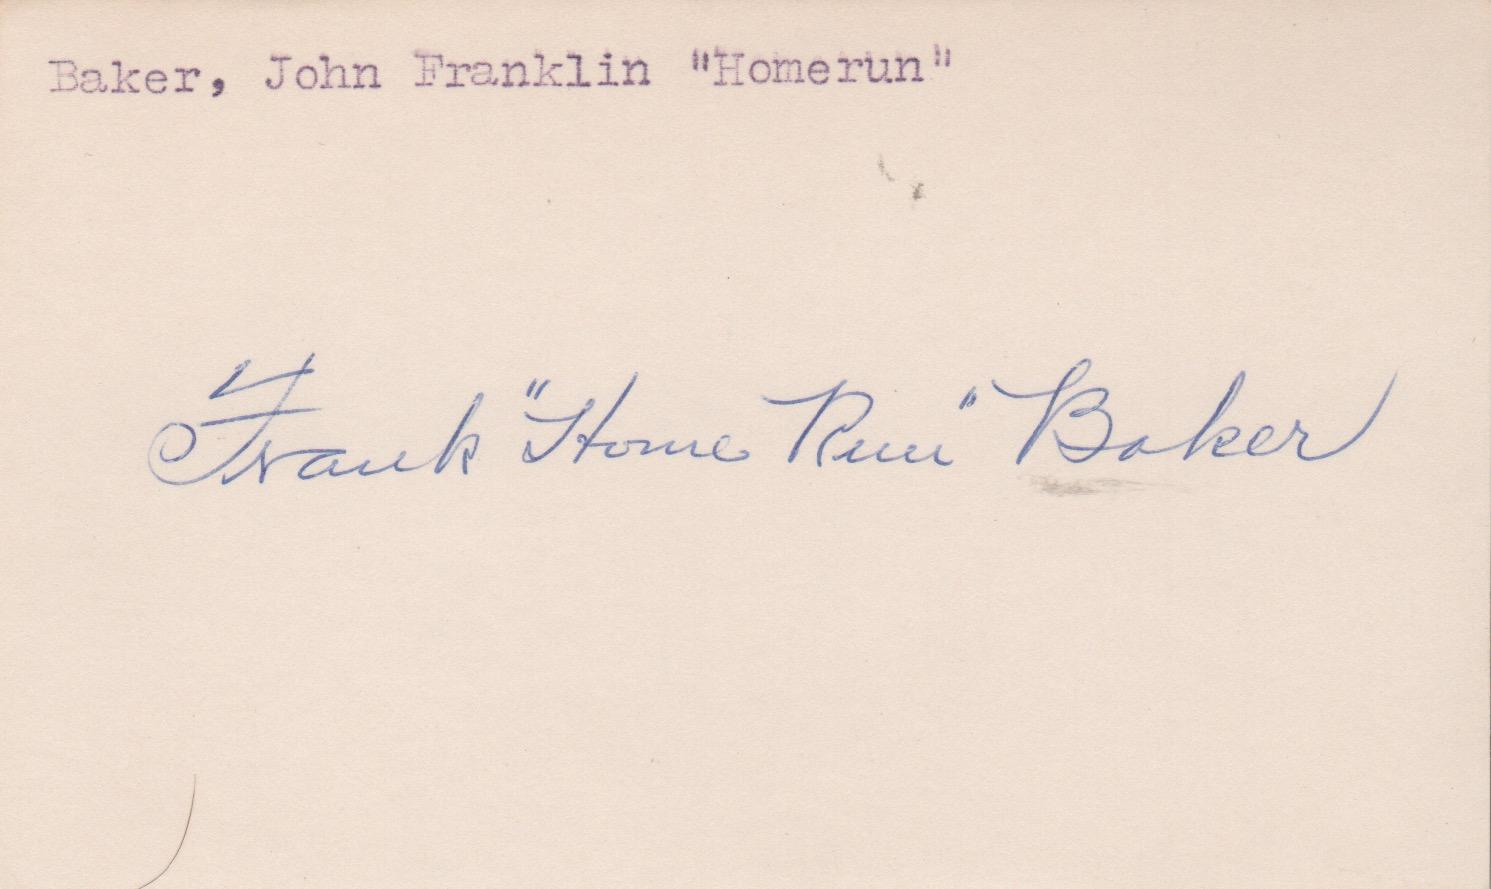 Baker, John Franklin "Homerun"
Frank "Home Run" Baker